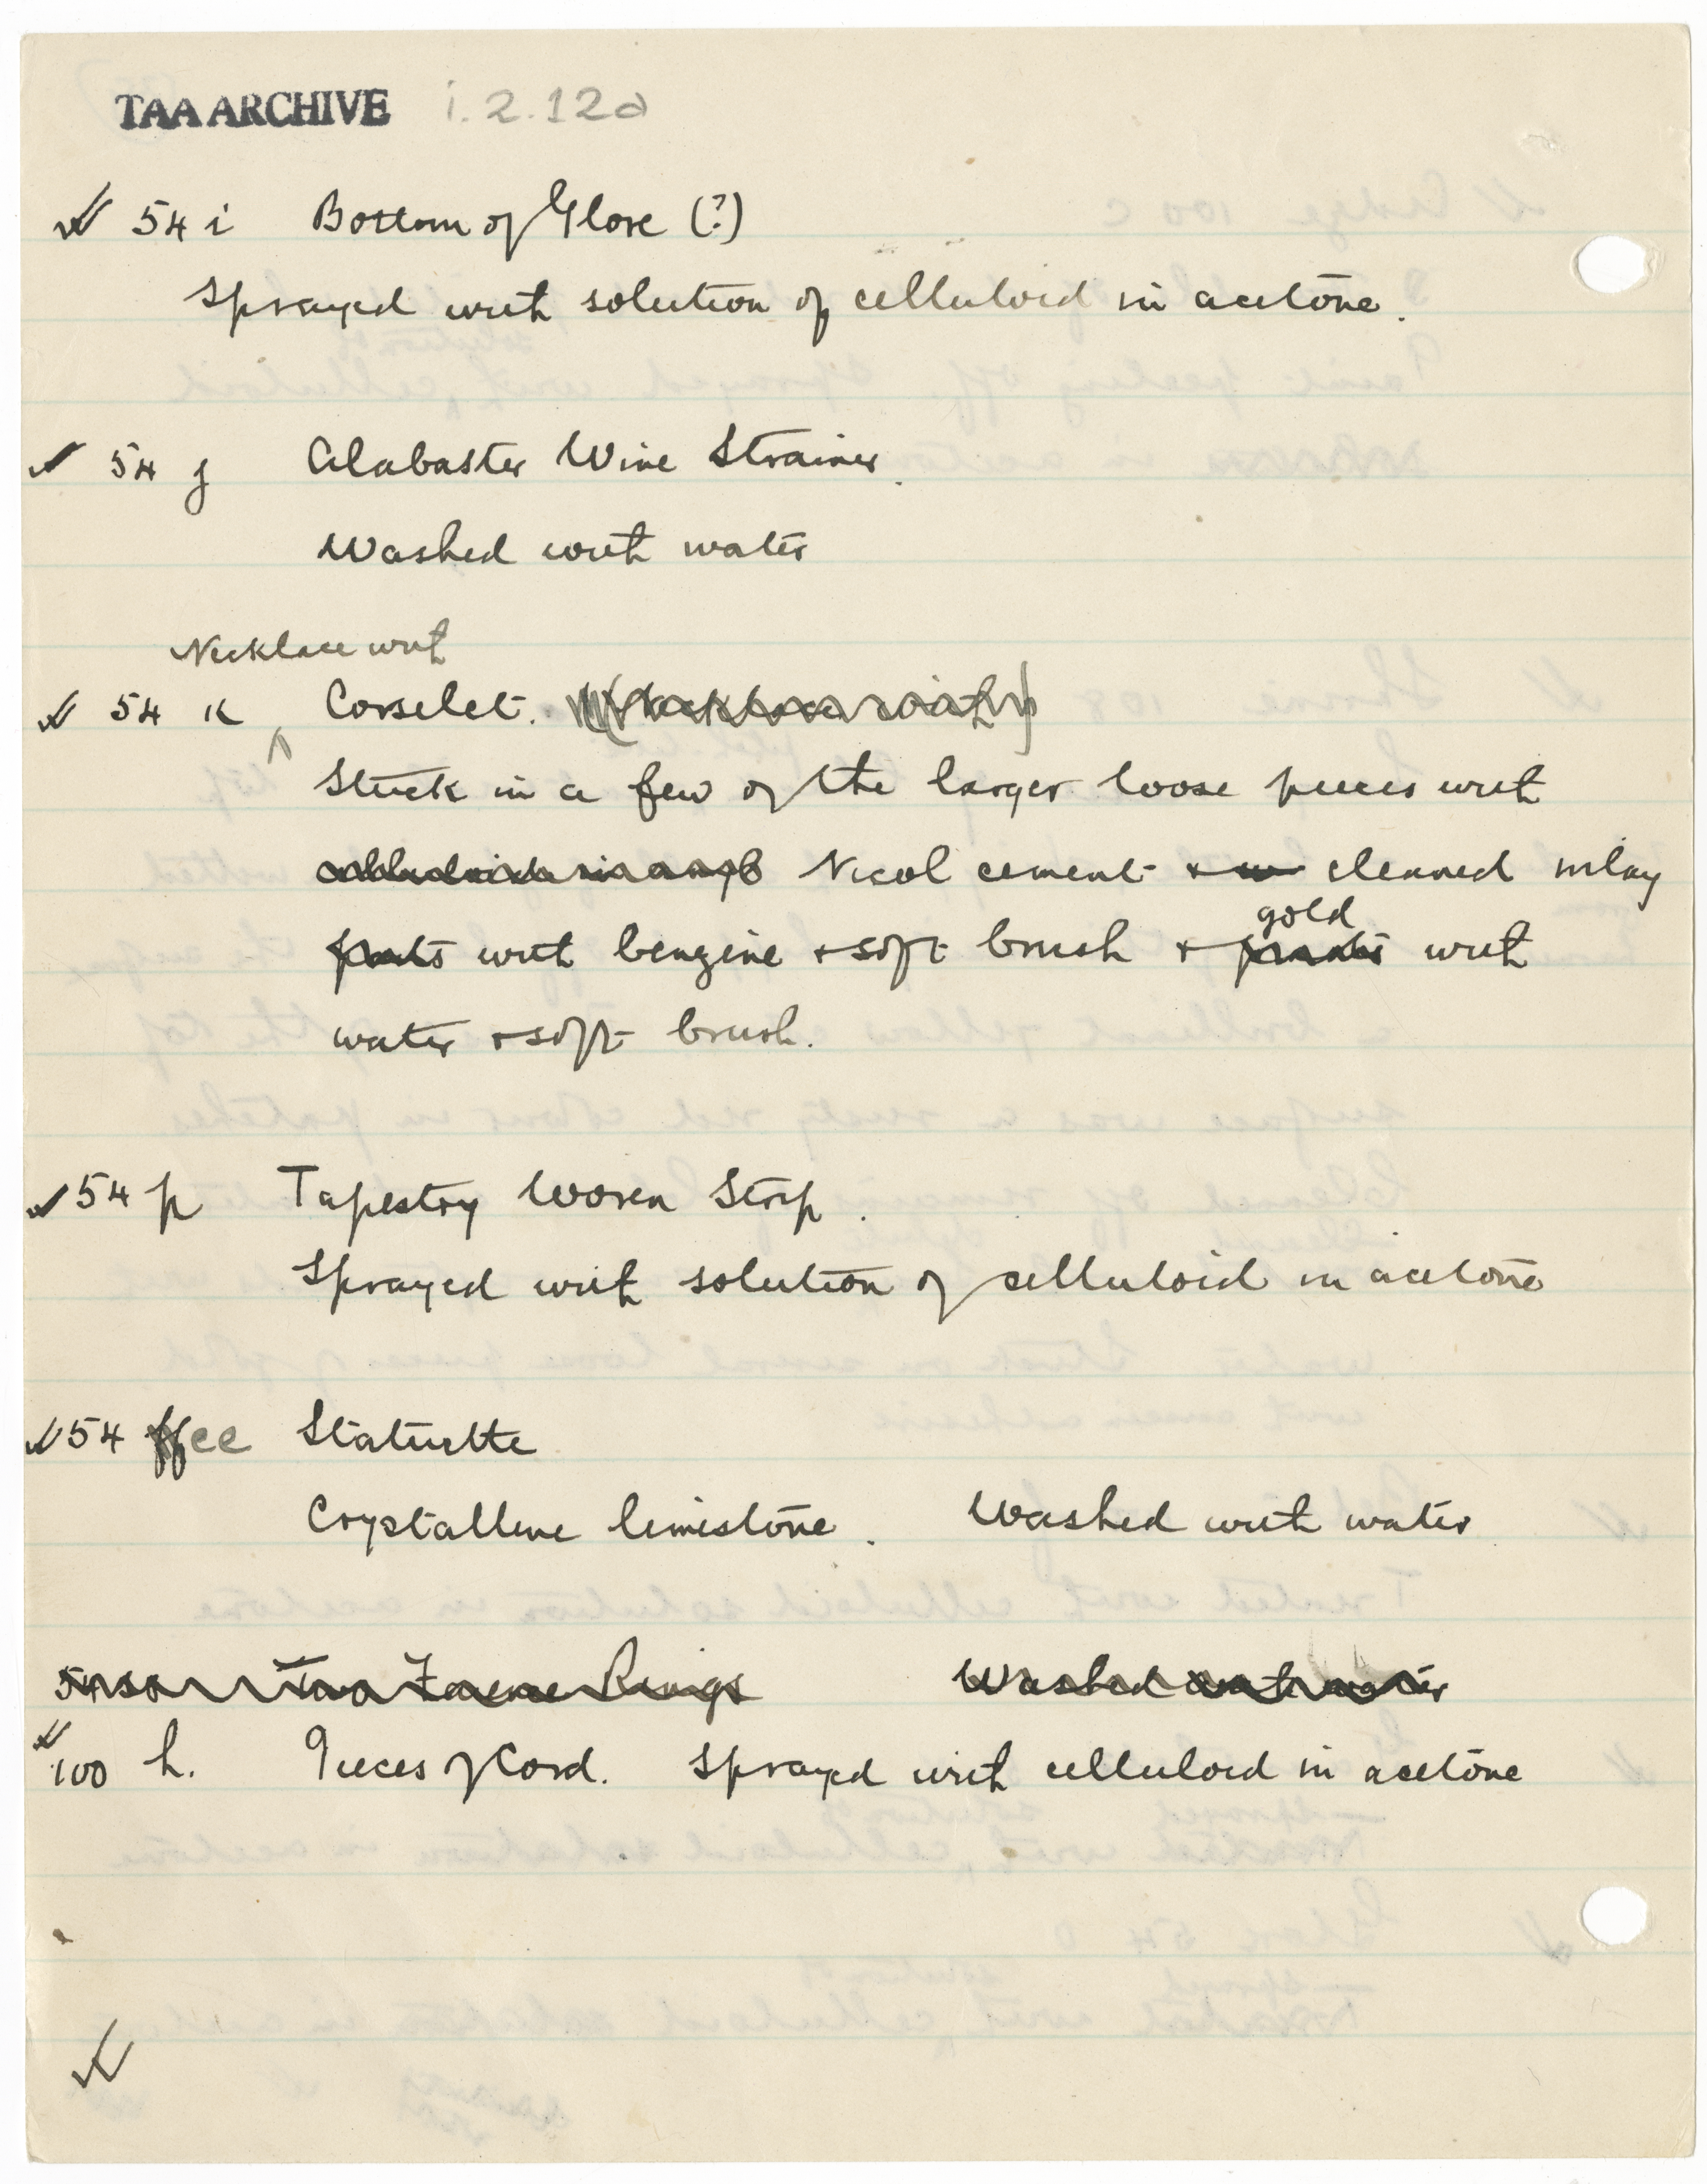 TAA ARCHIVE i.2.12a
54 i Bottom of Glove (?)
Sprayed with solution of celluloid in acetone.
54 j Alabaster Wine Strainer.
Washed with water
Necklace with
54 k Corselet. (Necklace with)
Stuck in a few of the larger loose pieces with
Nicol cement + cleaned inlay
parts with benzine + soft brush + gold with
water + soft brush.
54 p Tapestry Woven Strip.
Sprayed with solution of celluloid in acetone
54 ee Statuette
Crystalline limestone. Washed with water
Two Faience Rings Washed with water
100 h. Pieces of Cord. Sprayed with celluloid in acetone